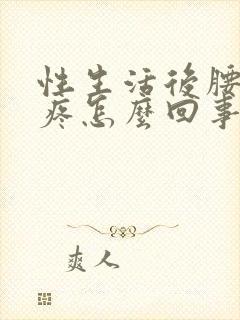 性生活後腰
疼怎麼回事
爽人